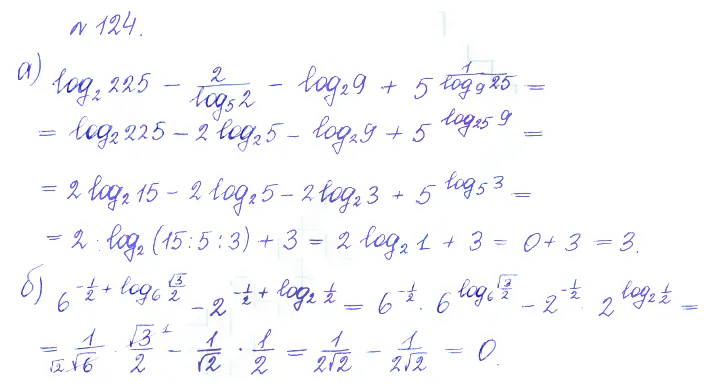 № 124.
а) log₂225 − 2/log₅2 − log₂9 + 5^(1/log₉25) =
= log₂225 − 2log₂5 − log₂9 + 5^(log₂₅9) =
= 2log₂15 − 2log₂5 − 2log₂3 + 5^(log₅3) =
= 2·log₂(15:5:3) + 3 = 2log₂1 + 3 = 0 + 3 = 3.
б) 6^(−1/2 + log₆(√3/2)) − 2^(−1/2 + log₂(1/2)) = 6^(−1/2) · 6^(log₆(√3/2)) − 2^(−1/2) · 2^(log₂(1/2)) =
= 1/√6 (√2) · √3/2 (1) − 1/√2 · 1/2 = 1/(2√2) − 1/(2√2) = 0.